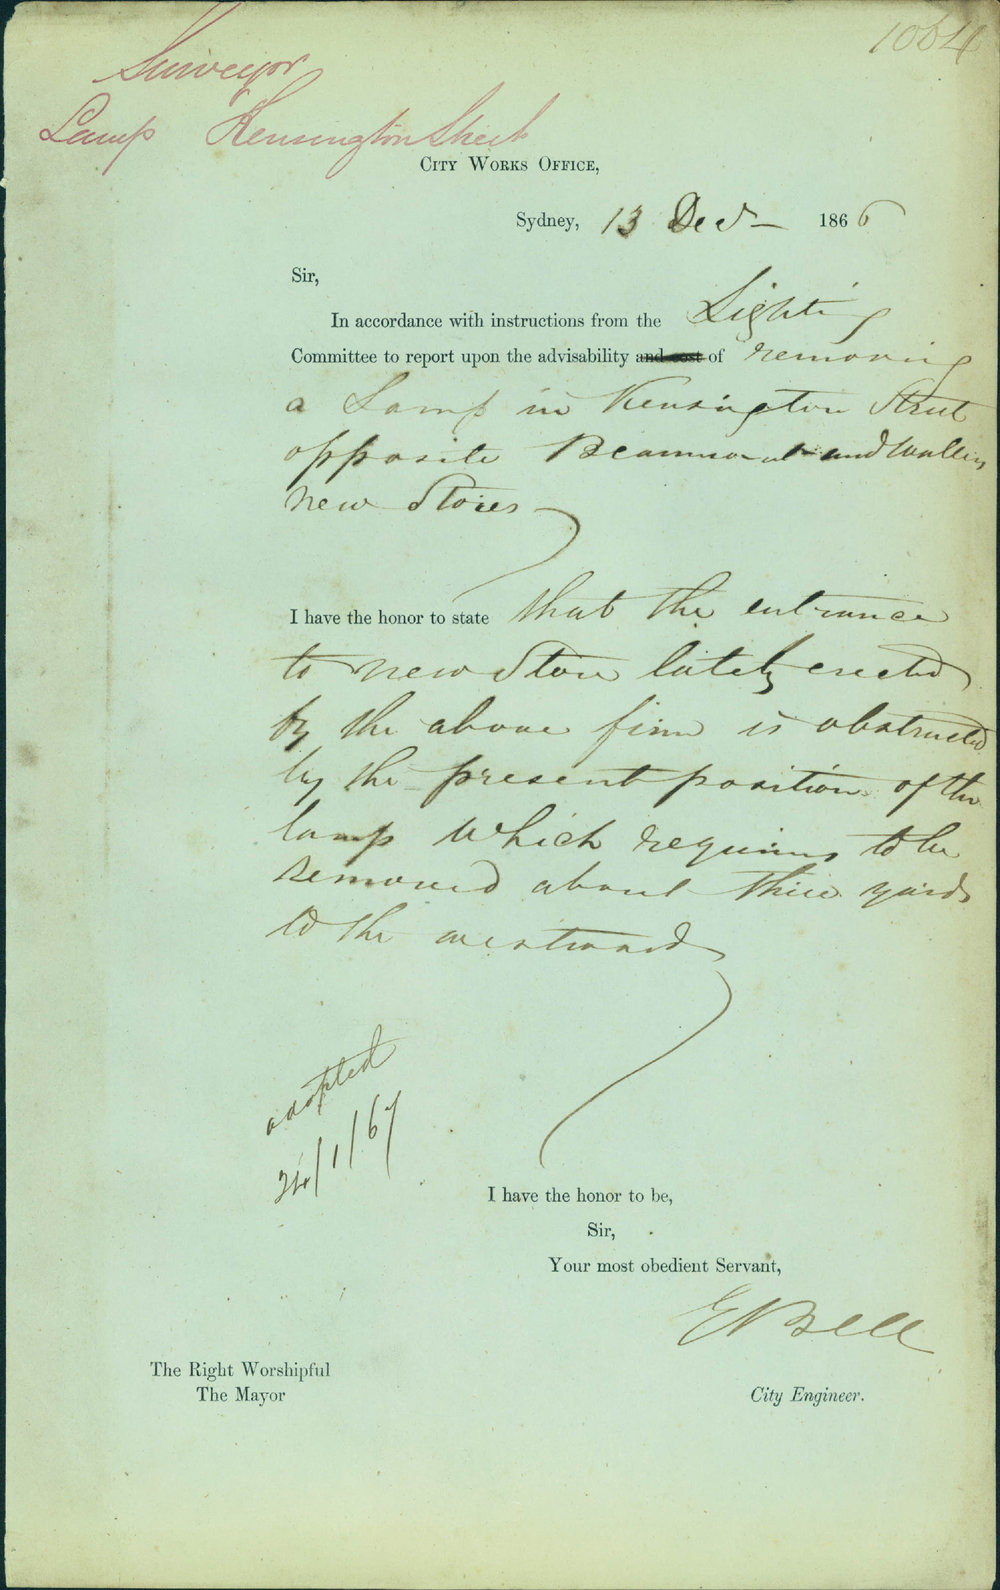 1064
Surveyor
Lamp Kensington Street
CITY WORKS OFFICE,
Sydney, 13 Decr 1866
Sir,
In accordance with instructions from the Lighting
Committee to report upon the advisability and cost of removing
a Lamp in Kensington Street
opposite Beaumont and Wallers
new Stores
I have the honor to state that the entrance
to new Store lately erected
by the above firm is obstructed
by the present position of the
lamp which requires to be
removed about three yards
to the westward
adopted
24/1/67
I have the honor to be,
Sir,
Your most obedient Servant,
E Bell
The Right Worshipful
The Mayor
City Engineer.